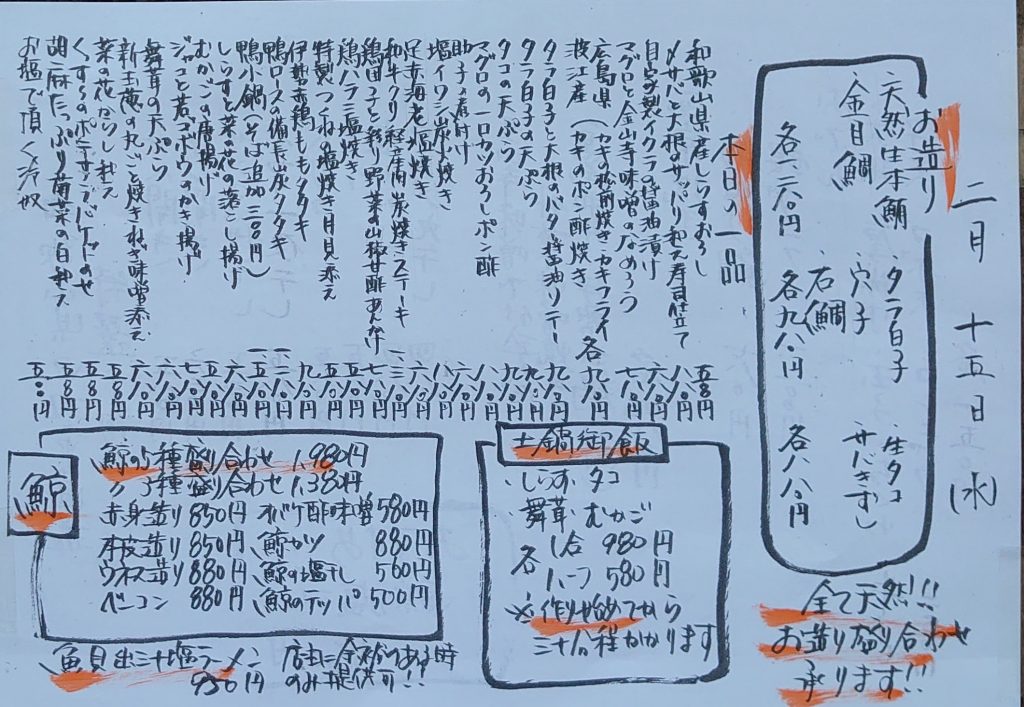 二月 十五日 (水)
お造り
天然生本鮪 タラ白子 生タコ
金目鯛 穴子 サバきずし
石鯛
各一二八〇円 各九八〇円 各八八〇円
全て天然!!
お造り盛り合わせ
承ります!!
本日の一品
和歌山県産しらすおろし 五八〇円
〆サバと大根のサッパリ和え寿司仕立て 八八〇円
自家製イクラの醤油漬け 六八〇円
マグロと金山寺味噌のなめろう 七八〇円
広島県 (カキの松前焼き・カキフライ
波江産 (カキのポン酢焼き 各九八〇円
タラ白子と大根のバタ醤油ソテー 九八〇円
タラ白子の天ぷら 九八〇円
タコの天ぷら 八八〇円
マグロの一口カツおろしポン酢
助子の煮付け
塩イワシ炭火焼き
足赤海老塩焼き
和牛クリ 経産肉 炭焼きステーキ
鶏団子と彩り野菜の山椒甘酢あんかけ
鶏ハラミ塩焼き
特製つくねの塩焼き月見添え
伊勢赤鶏ももタタキ
鴨ロースの備長炭タタキ
鴨小鍋(そば追加二〇〇円)
しらすと菜の花の落とし揚げ
むかごの唐揚げ
ジャコと若ゴボウのかき揚げ
舞茸の天ぷら
新玉葱の丸ごと焼き ねぎ味噌添え
菜の花からし和え
くずきりのポテサラ バケットのせ
胡麻たっぷり菊菜の白和え
お塩で頂く冷奴
土鍋御飯
・しらす・タコ
・舞茸・むかご
各 1合 980円
ハーフ 580円
※作り始めてから
三十分程かかります
鯨
鯨の5種盛り合わせ 1,980円
〃 3種盛り合わせ 1,380円
赤身造り 850円 オバケ酢味噌 580円
本皮造り 850円 鯨カツ 880円
ウネス造り 880円 鯨の塩干し 560円
ベーコン 880円 鯨のテッパ 500円
魚貝出汁塩ラーメン
950円
店主に余裕のある時
のみ提供可!!